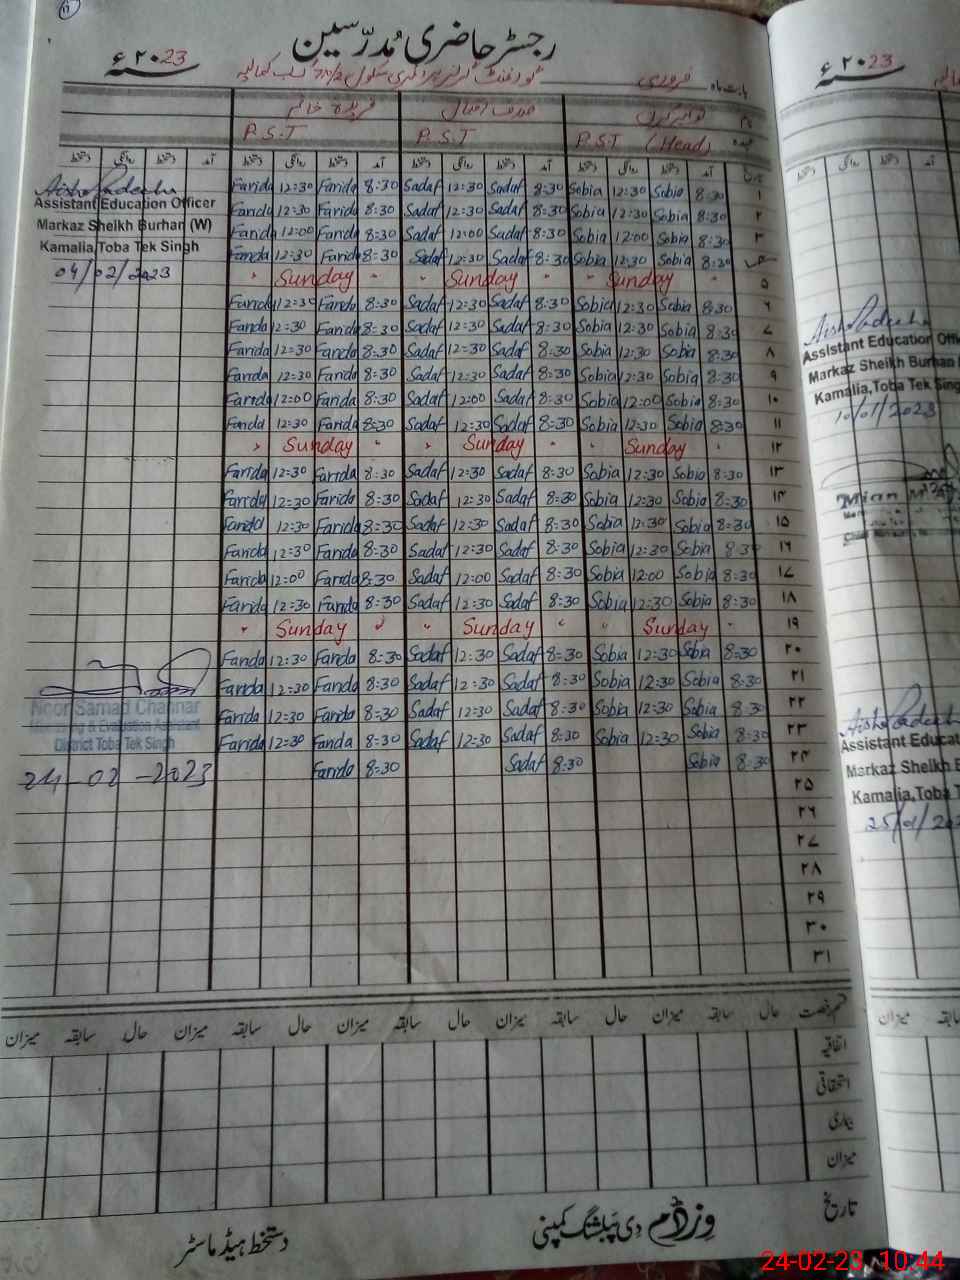 رجسٹر حاضری مُدرّسین
۲۰23ء
بابت ماہ فروری
نام
عہدہ
فریدہ خانم
صدف اقبال
P.S.T
P.S.T
P.S.T (Head)
دستخط روانگی دستخط آمد دستخط روانگی دستخط آمد دستخط روانگی دستخط آمد دستخط روانگی دستخط آمد
Farida 12:30 Farida 8:30 Sadaf 12:30 Sadaf 8:30 Sobia 12:30 Sobia 8:30 ۱
Farida 12:30 Farida 8:30 Sadaf 12:30 Sadaf 8:30 Sobia 12:30 Sobia 8:30 ۲
Farida 12:00 Farida 8:30 Sadaf 12:00 Sadaf 8:30 Sobia 12:00 Sobia 8:30 ۳
Farida 12:30 Farida 8:30 Sadaf 12:30 Sadaf 8:30 Sobia 12:30 Sobia 8:30
" Sunday " " Sunday " " Sunday ۵
Farida 12:30 Farida 8:30 Sadaf 12:30 Sadaf 8:30 Sobia 12:30 Sobia 8:30 ۶
Farida 12:30 Farida 8:30 Sadaf 12:30 Sadaf 8:30 Sobia 12:30 Sobia 8:30 ۷
Farida 12:30 Farida 8:30 Sadaf 12:30 Sadaf 8:30 Sobia 12:30 Sobia 8:30 ۸
Farida 12:30 Farida 8:30 Sadaf 12:30 Sadaf 8:30 Sobia 12:30 Sobia 8:30 ۹
Farida 12:00 Farida 8:30 Sadaf 12:00 Sadaf 8:30 Sobia 12:00 Sobia 8:30 ۱۰
Farida 12:30 Farida 8:30 Sadaf 12:30 Sadaf 8:30 Sobia 12:30 Sobia 8:30 ۱۱
" Sunday " " Sunday " " Sunday " ۱۲
Farida 12:30 Farida 8:30 Sadaf 12:30 Sadaf 8:30 Sobia 12:30 Sobia 8:30 ۱۳
Farida 12:30 Farida 8:30 Sadaf 12:30 Sadaf 8:30 Sobia 12:30 Sobia 8:30 ۱۴
Farida 12:30 Farida 8:30 Sadaf 12:30 Sadaf 8:30 Sobia 12:30 Sobia 8:30 ۱۵
Farida 12:30 Farida 8:30 Sadaf 12:30 Sadaf 8:30 Sobia 12:30 Sobia 8:30 ۱۶
Farida 12:00 Farida 8:30 Sadaf 12:00 Sadaf 8:30 Sobia 12:00 Sobia 8:30 ۱۷
Farida 12:30 Farida 8:30 Sadaf 12:30 Sadaf 8:30 Sobia 12:30 Sobia 8:30 ۱۸
" Sunday " " Sunday " " Sunday " ۱۹
Farida 12:30 Farida 8:30 Sadaf 12:30 Sadaf 8:30 Sobia 12:30 Sobia 8:30 ۲۰
Farida 12:30 Farida 8:30 Sadaf 12:30 Sadaf 8:30 Sobia 12:30 Sobia 8:30 ۲۱
Farida 12:30 Farida 8:30 Sadaf 12:30 Sadaf 8:30 Sobia 12:30 Sobia 8:30 ۲۲
Farida 12:30 Farida 8:30 Sadaf 12:30 Sadaf 8:30 Sobia 12:30 Sobia 8:30 ۲۳
Farida 8:30 Sadaf 8:30 Sobia 8:30 ۲۴
۲۵
۲۶
۲۷
۲۸
۲۹
۳۰
۳۱
Assistant Education Officer
Markaz Sheikh Burhan (W)
Kamalia,Toba Tek Singh
04/02/2023
Noor Samad Channar
Monitoring & Evaluation Assistant
District Toba Tek Singh
24-02-2023
قسم رخصت حال سابقہ میزان حال سابقہ میزان حال سابقہ میزان حال سابقہ میزان
اتفاقیہ
استحقاقی
بیماری
میزان
تاریخ
وزڈم دی پبلشنگ کمپنی
دستخط ہیڈ ماسٹر
۲۰23ء
Assistant Education Offi
Markaz Sheikh Burhan
Kamalia,Toba Tek Sing
10/01/2023
Mian
Assistant Educat
Markaz Sheikh B
Kamalia,Toba T
25/01/202
میزان
24-02-23 10:44